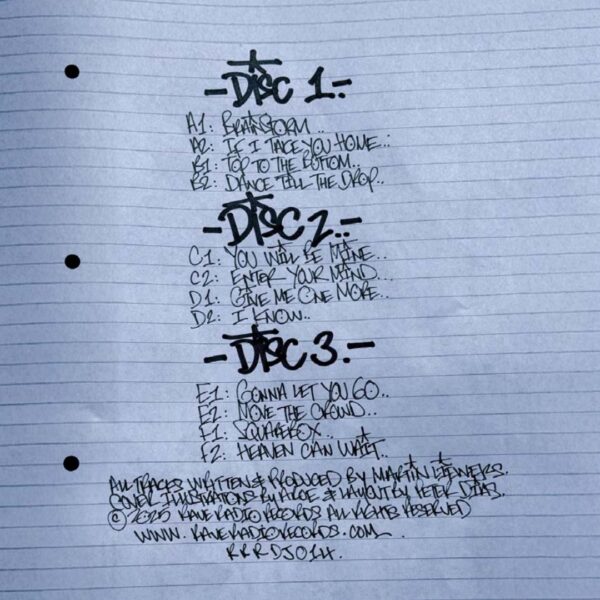 -DISC 1.-
A1: BRAINSTORM..
A2: IF I TAKE YOU HOME..
B1: TOP TO THE BOTTOM..
B2: DANCE TILL THE DROP..
-DISC 2.-
C1: YOU WILL BE MINE..
C2: ENTER YOUR MIND..
D1: GIVE ME ONE MORE..
D2: I KNOW..
-DISC 3.-
E1: GONNA LET YOU GO..
E2: MOVE THE CROWD..
F1: SQUAREBOX..
F2: HEAVEN CAN WAIT..
ALL TRACKS WRITTEN & PRODUCED BY MARTIN
COVER ILLUSTRATIONS BY & LAYOUT BY PETER
© 2025 RAVE RADIO RECORDS ALL RIGHTS RESERVED
WWW.RAVERADIORECORDS.COM